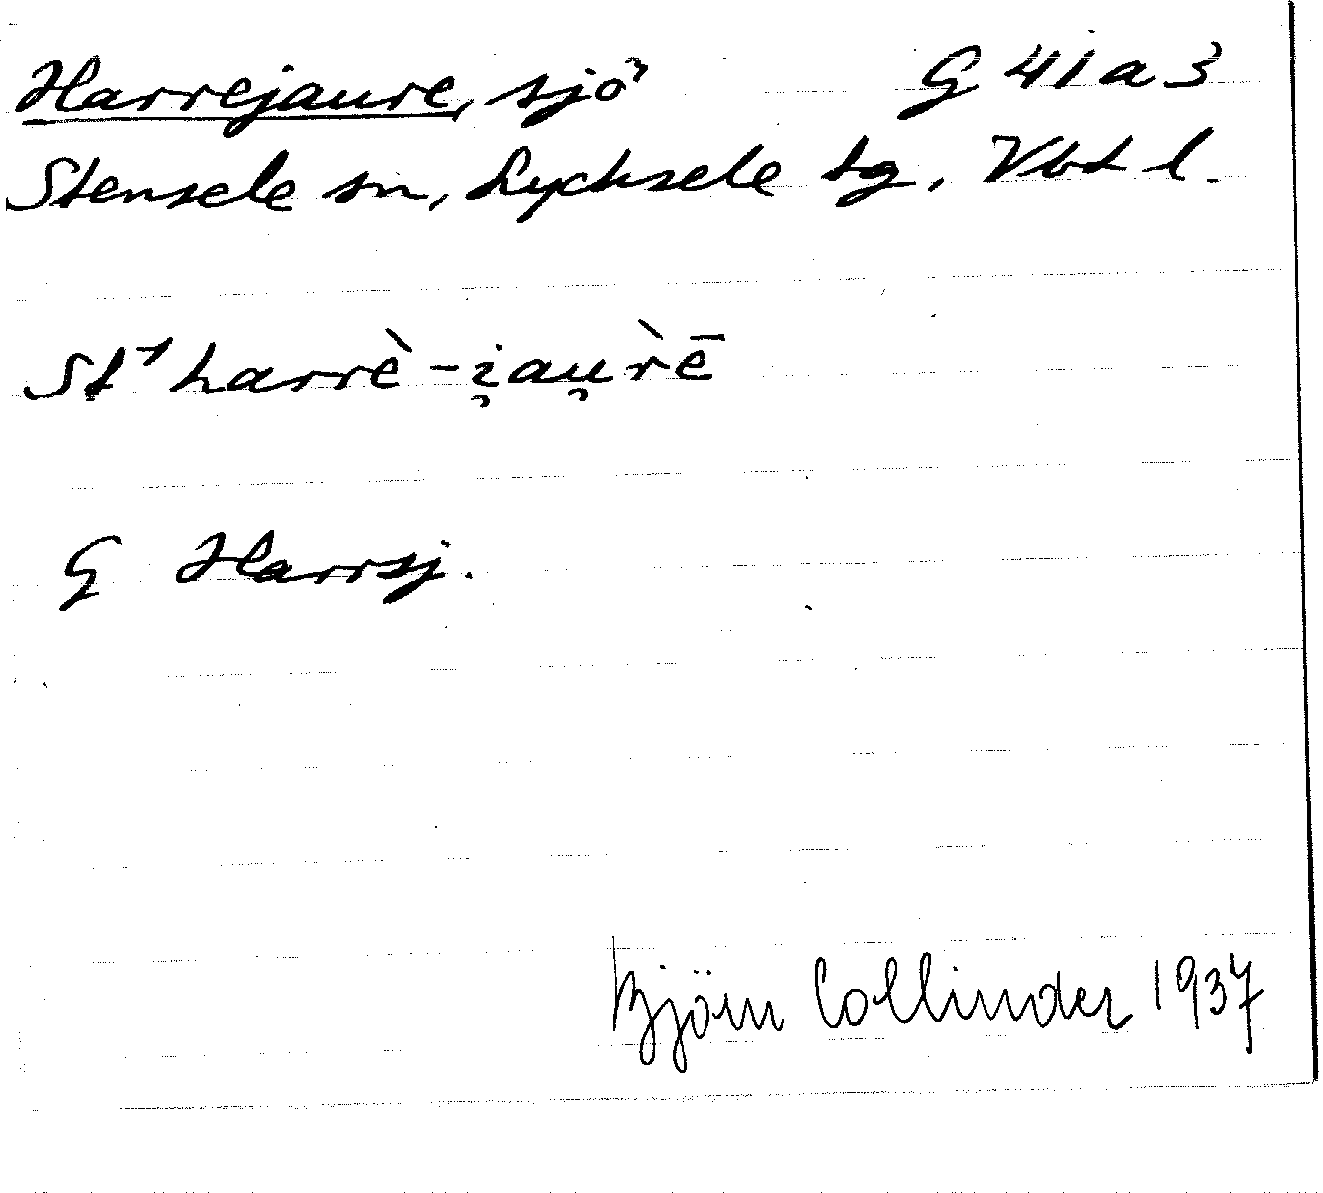 Harrejaure, sjö G 41 a 3
Stensele sn, Lycksele tg, Vbt l.
St¹ harrè-i̯au̯r̀ē
G Harrsj.
Björn Collinder 1937